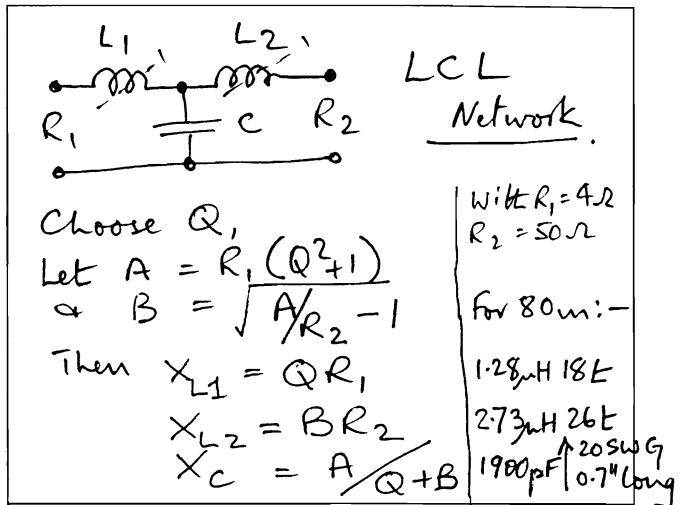 L1 L2
R1 C R2
LCL
Network.
Choose Q,
Let A = R1 (Q²+1)
& B = √(A/R2 - 1)
Then XL1 = QR1
XL2 = BR2
XC = A/Q+B
With R1 = 4Ω
R2 = 50Ω
For 80m:-
1.28μH 18t
2.73μH 26t
1900pF ↑ 20SWG
0.7" long